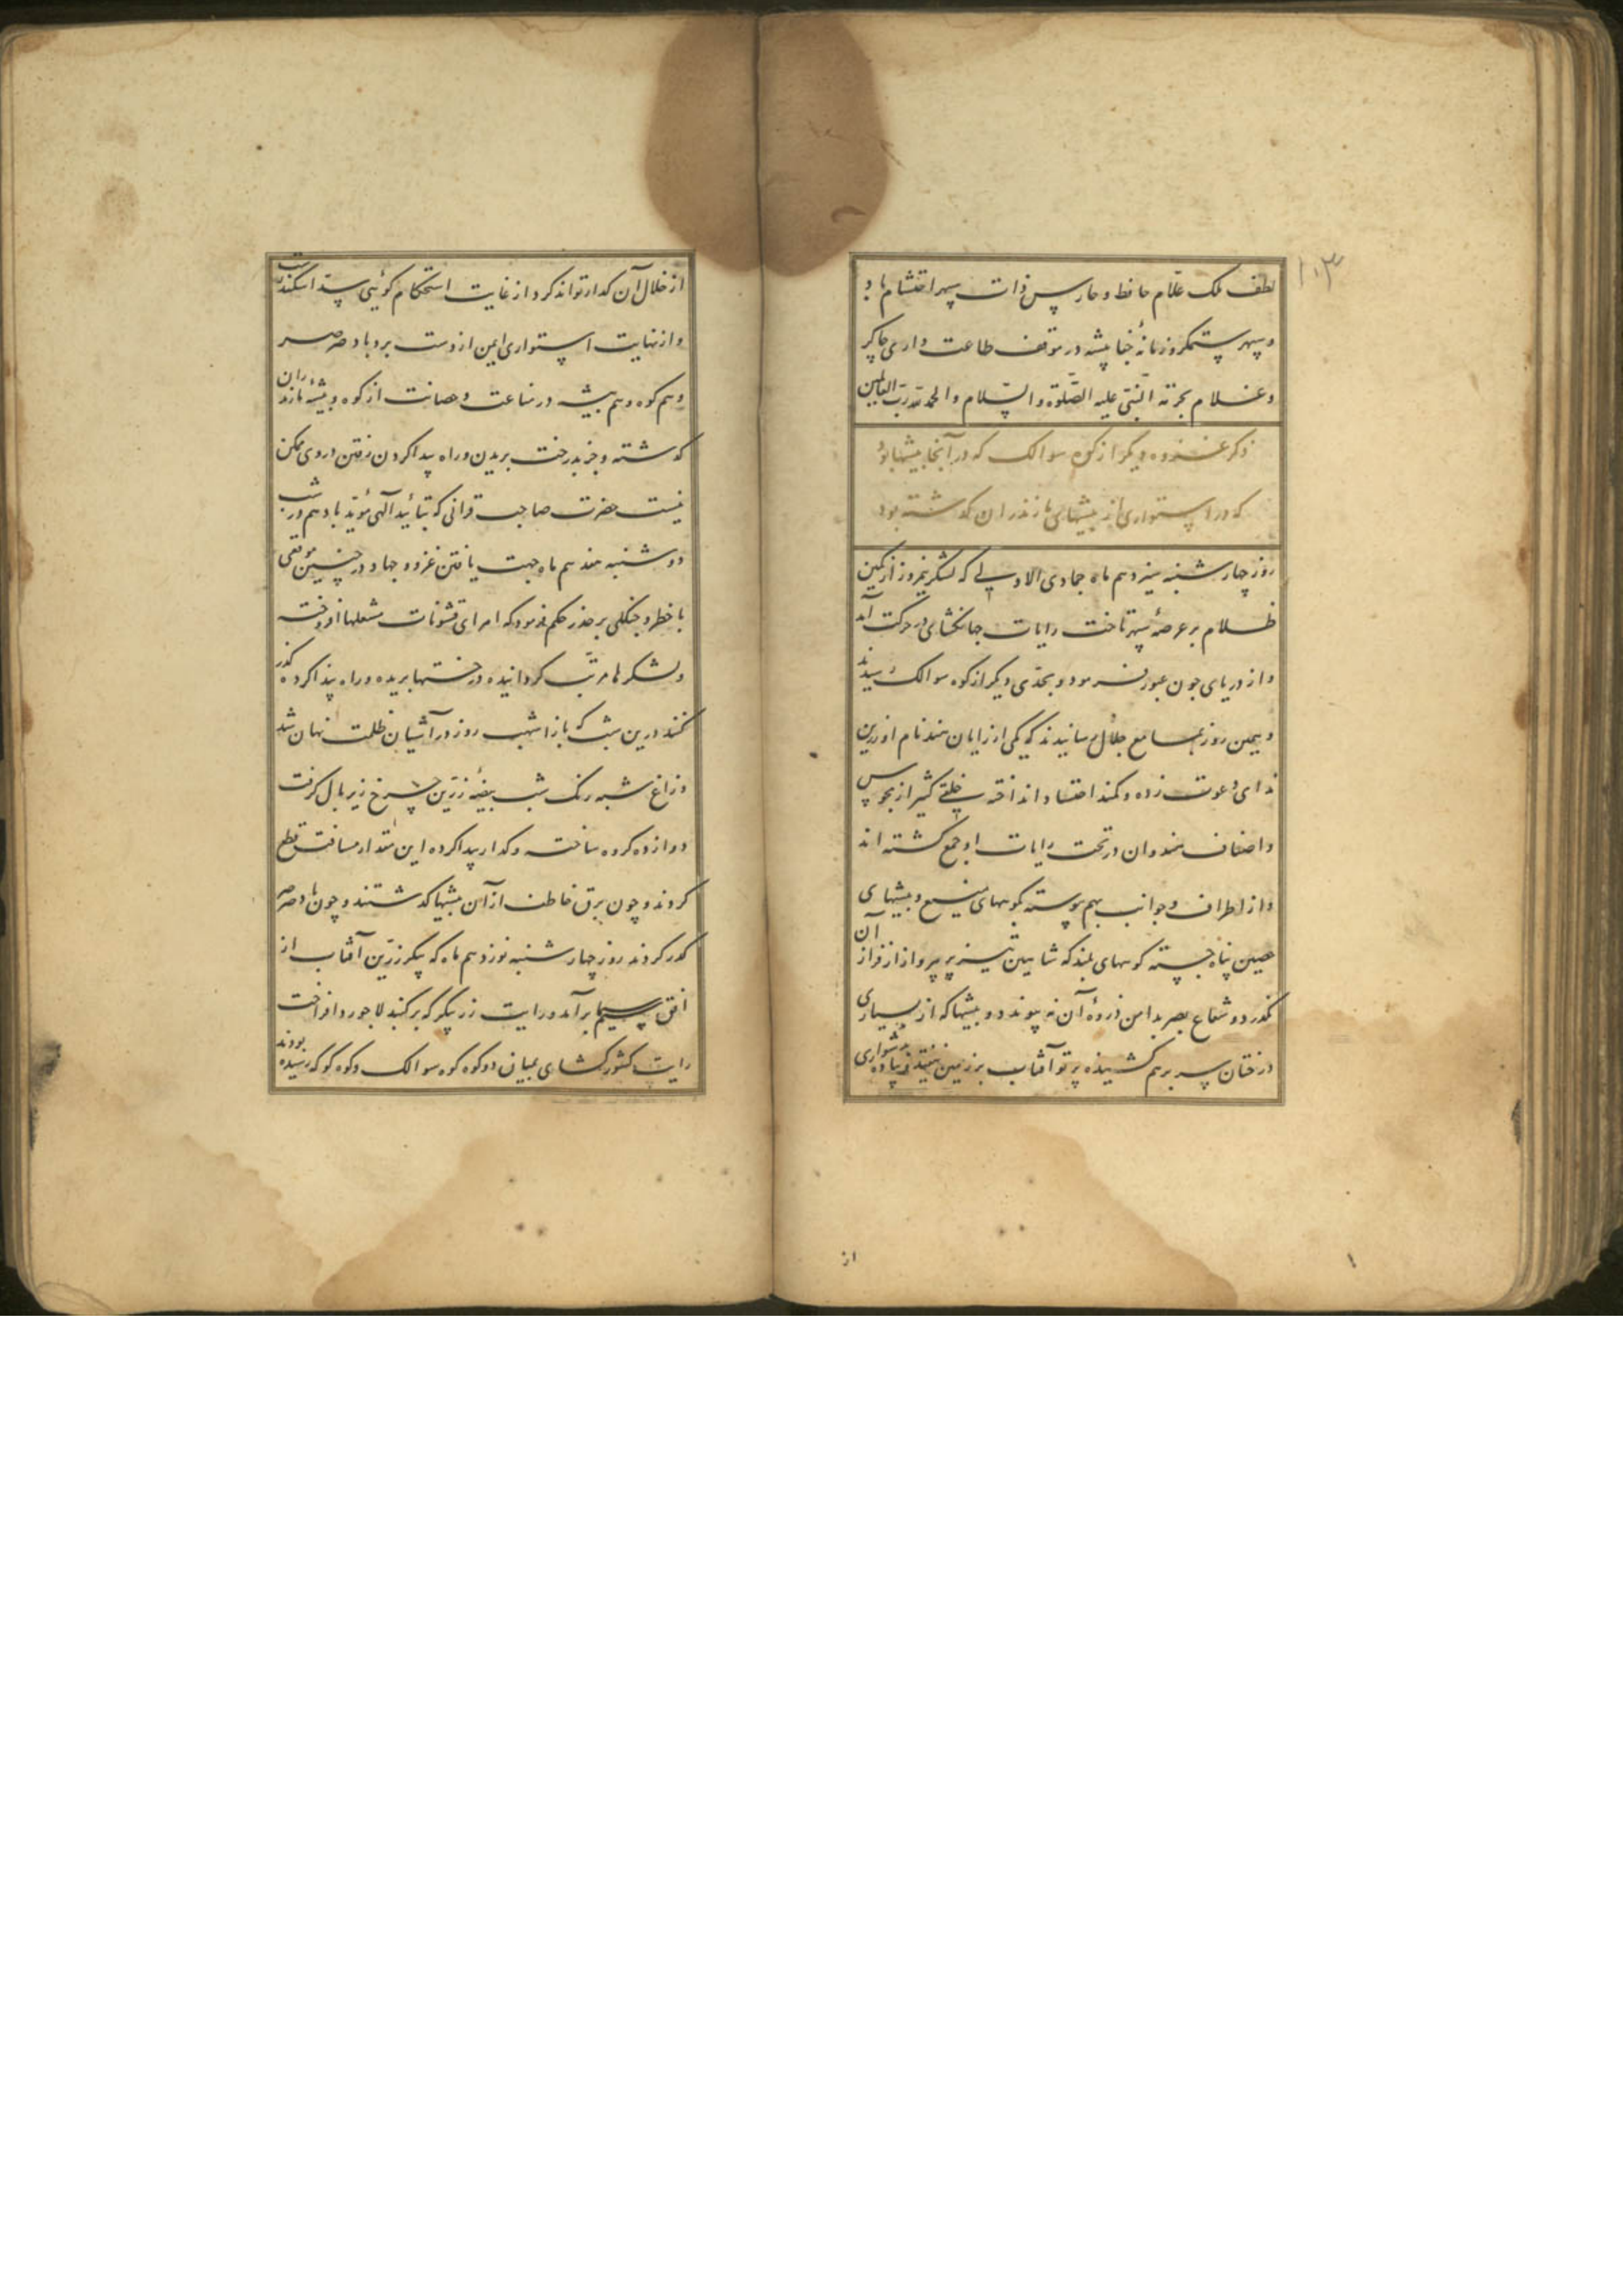 ۱۰۳
لطف ملک علّام حافظ و حارس ذات سپهر احتشام باد
و سپهر ستمکر و زمانهٔ جفا پیشه در موقف طاعت داری چاکر
و غلام بحرمة النّبی علیه الصّلوة و السّلام والحمد لله ربّ العالمین
ذکر غزوه دیکر از کوه سوالک که در آنجا بیشها بود
که در استواری از بیشهای مازندران کذشته بود
روز چهارشنبه سیزدهم ماه جمادی الاولی که لشکر نیمروز از کمین
ظلام بر عرصهٔ سپهر تاخت رایات جهانکشای در حرکت آمد
و از دریای جون عبور فرمود و بحدّی دیکر از کوه سوالک رسیدند
و بهمین روز بمسامع جلال رسانیدند که یکی از رایان هند نام او رین
ندای دعوت زده و کمند احتشاد انداخته خلقی کثیر از مجوس
و اصناف هندوان در تحت رایات او جمع کشته اند
و از اطراف و جوانب بهم پیوسته بکوههای منیع و بیشهای
حصین پناه جسته کوههای بلند که شاهین تیز پر پرواز از فراز آن
نکذرد و شعاع بصر بدامن ذروهٔ آن نه پیوندد و بیشها که از بسیاری
درختان سر برهم کشیده پرتو آفتاب بر زمین نیفتد و پیاده بدشواری
از
از خلال آن کذار تواند کرد از غایت استحکام کوئی سدّ اسکندرست
و از نهایت استواری ایمن از دست برد باد صرصر
و هم کوه و هم بیشه در مناعت و حصانت از کوه و بیشهٔ مازندران
کذشته و جز بدرخت بریدن و راه پیدا کردن رفتن دروی ممکن
نیست حضرت صاحب قرانی که بتأیید آلهی مؤیّد باد هم در شب
دوشنبه هفدهم ماه جهت یافتن غزو و جهاد در چنین موقعی
با خطر و جنکلی بر حذر حکم فرمود که امرای قشونات مشعلها افروخته
و لشکرها مرتّب کردانیده درختها بریده و راه پیدا کرده کذر
کنند درین شب که باز اشهب روز در آشیان ظلمت نهان شد
و زاغ شبه رنک شب بیضهٔ زرّین چرخ زیر بال کرفت
دوازده کروه ساخته و کذار پیدا کرده این مقدار مسافت قطع
کردند و چون برق خاطف از آن بیشها کذشتند و چون باد صرصر
کذر کردند روز چهارشنبه نوزدهم ماه که پیکر زرّین آفتاب از
افق سیم برآمد و رایت زر پیکر که بر کنبد لاجورد افراخت
رایت کشور کشای بمیان دو کوه کوه سوالک و کوه کوکه رسیده بودند